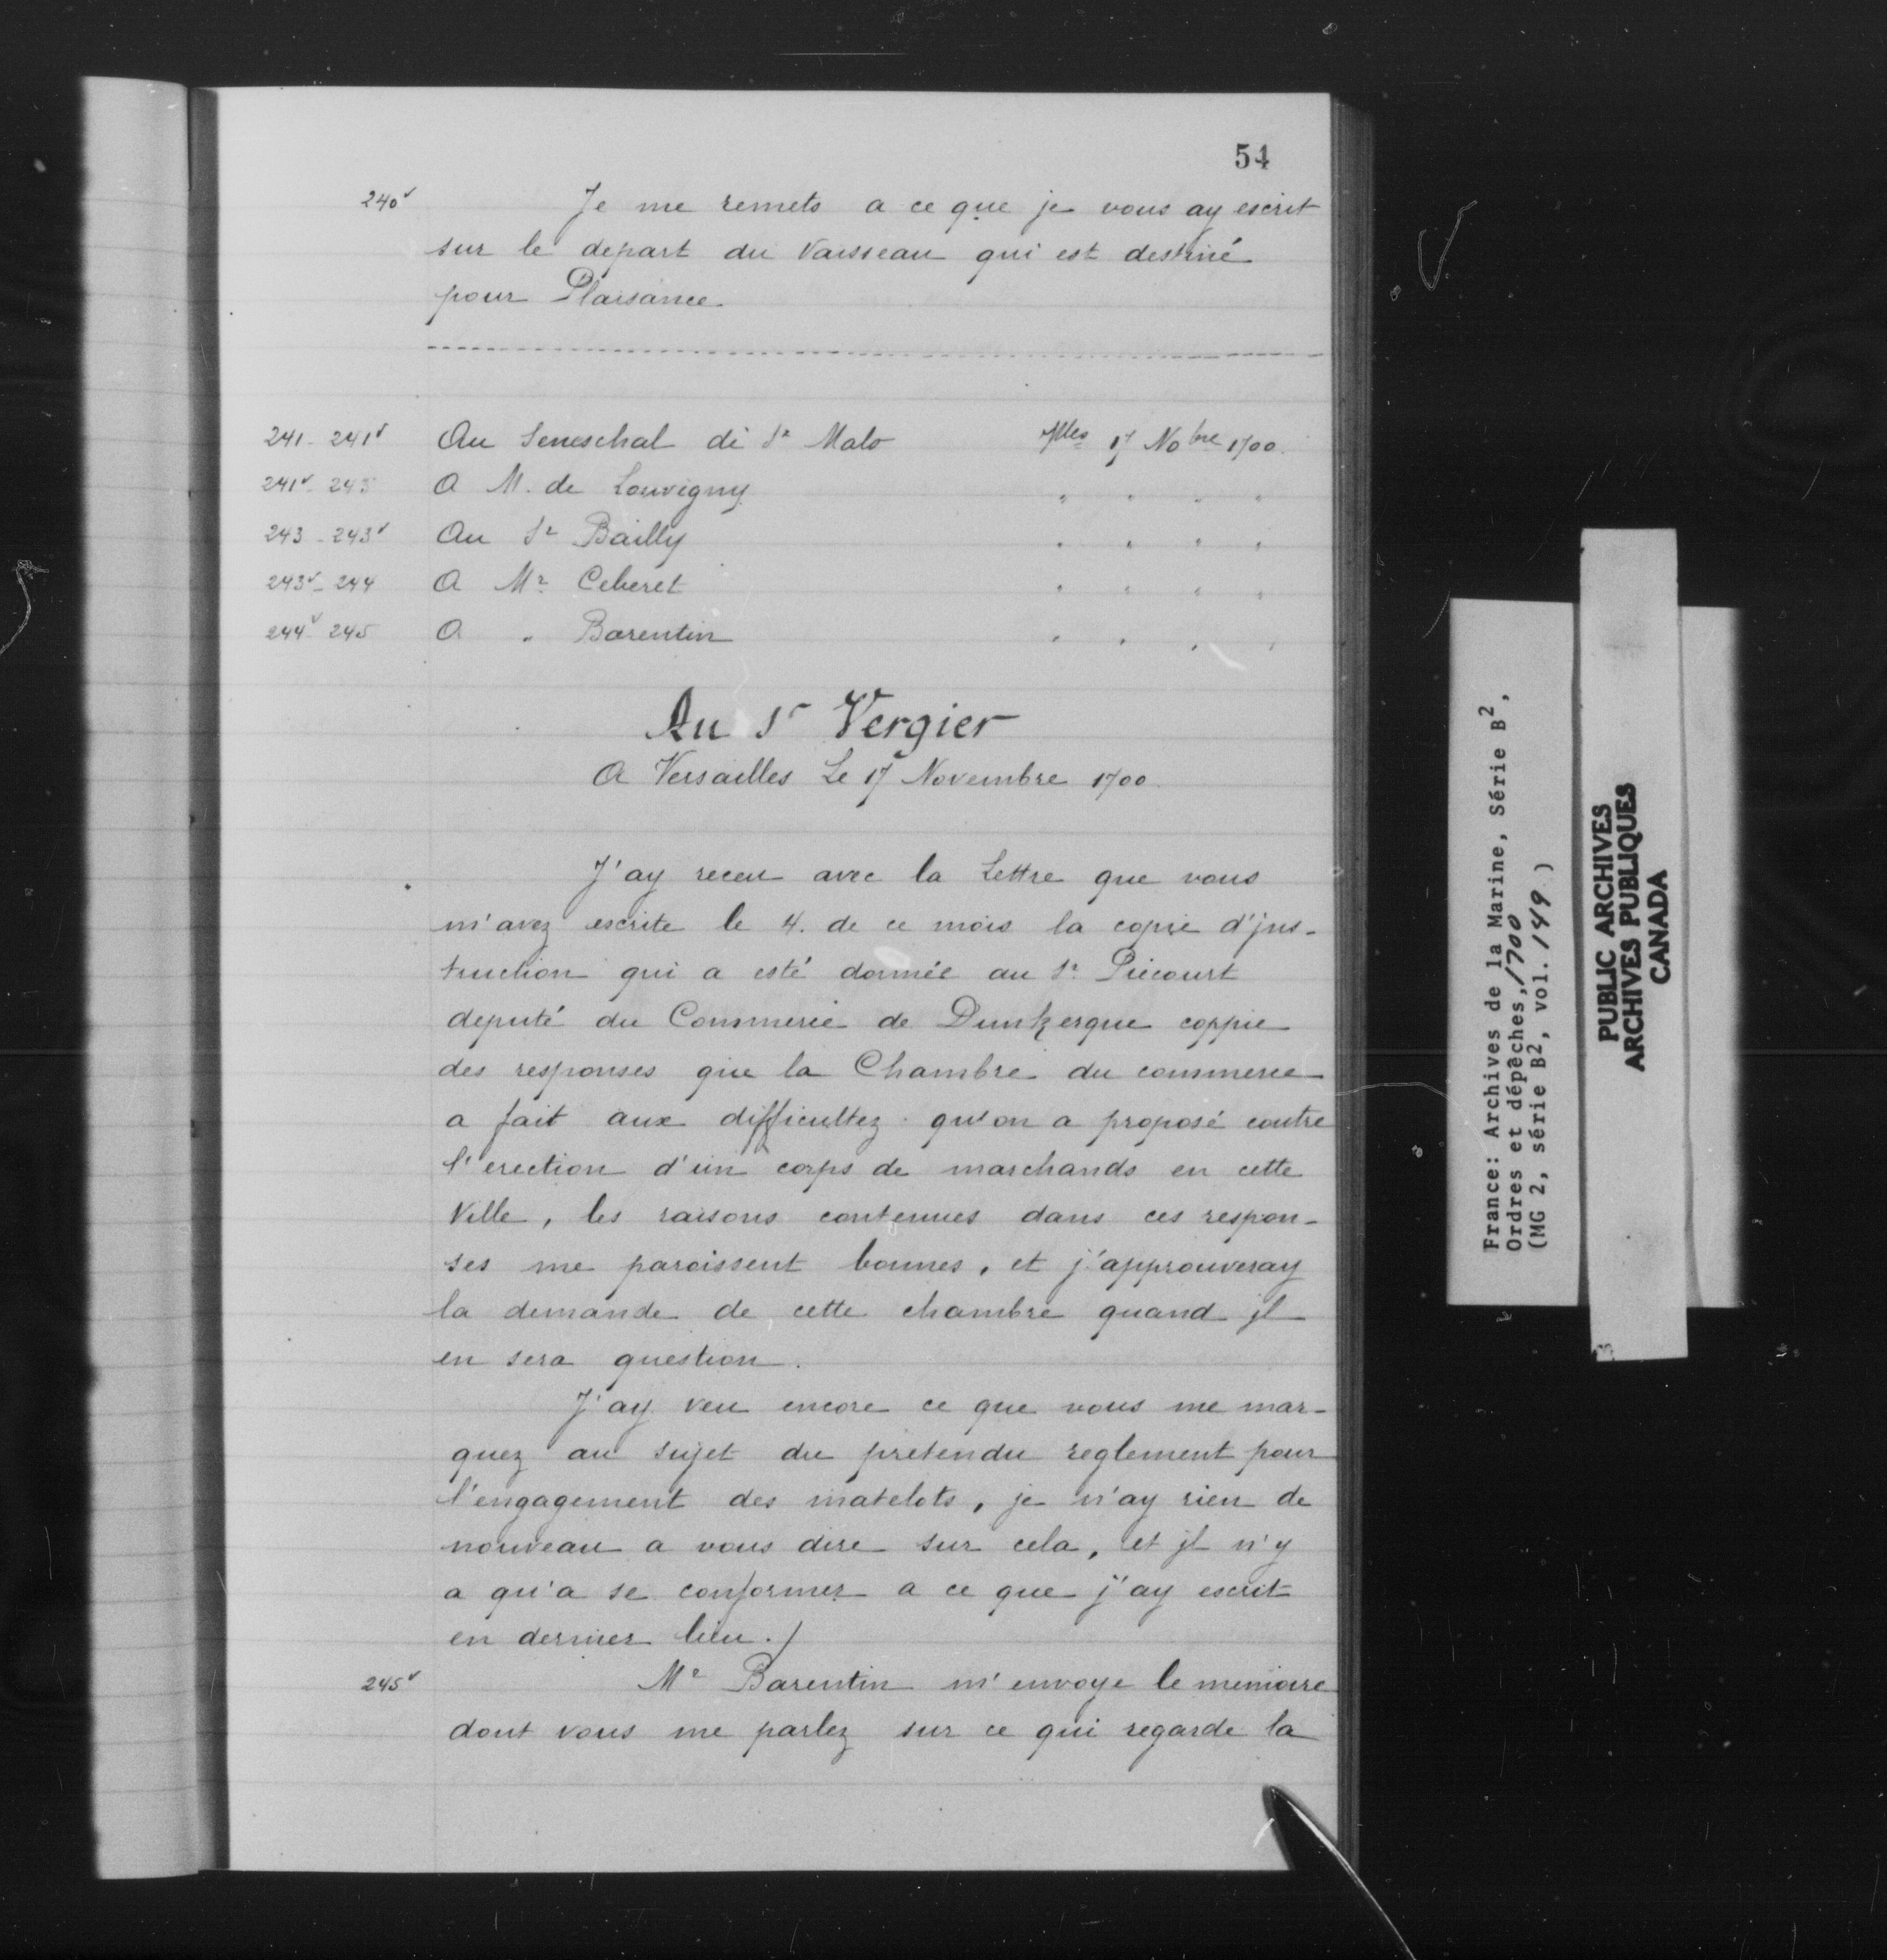 54
240v Je me remets a ce que je vous ay escrit
sur le depart du Vaisseau qui est destiné
pour Plaisance
241 - 241v Au Seneschal de St Malo Vlles 17 Nobre 1700.
241v - 243 A M. de Louvigny " " " "
243 - 243v Au Sr Bailly " " " "
243v - 244 A Mr Ceberet " " " "
244v - 245 A " Barentin " " " "
Au Sr Vergier
A Versailles Le 17 Novembre 1700.
J'ay receu avec la Lettre que vous
m'avez escrite le 4. de ce mois la copie d'jns-
truction qui a esté donnée au Sr Piecourt
deputé du Commerce de Dunkerque coppie
des responses que la Chambre du commerce
a fait aux difficultez qu'on a proposé contre
l'erection d'un corps de marchands en cette
Ville, les raisons contenues dans ces respon-
ses me paroissent bonnes, et j'approuveray
la demande de cette chambre quand jl
en sera question.
J'ay veu encore ce que vous me mar-
quez au sujet du pretendu reglement pour
l'engagement des matelots, je n'ay rien de
nouveau a vous dire sur cela, et jl n'y
a qu'a se conformer a ce que j'ay escrit
en dernier lieu ./
245v Mr Barentin m'envoye le memoire
dont vous me parlez sur ce qui regarde la
France: Archives de la Marine, Série B2,
Ordres et dépêches, 1700
(MG 2, série B2, vol. 149 )
PUBLIC ARCHIVES
ARCHIVES PUBLIQUES
CANADA